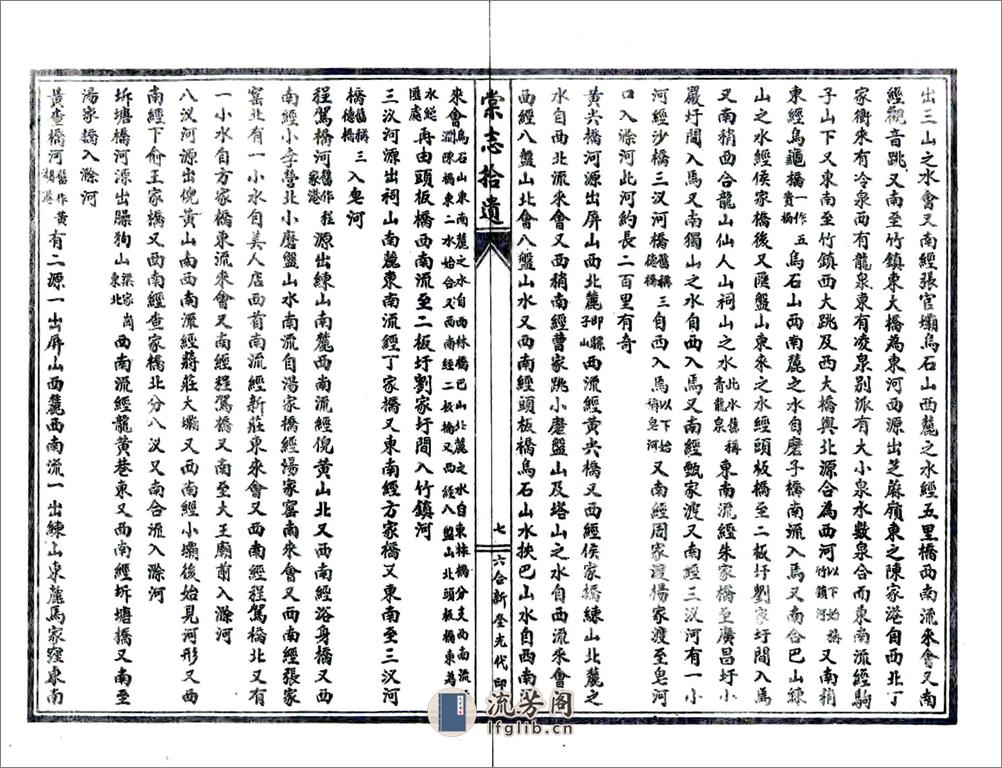 出三山之水會又南經張官壩烏石山西麓之水經五里橋西南流來會又南
經觀音跳又南至竹鎮東大橋為東河西源出芝蔴嶺東之陳家港自西北丁
家衝來有冷泉西有龍泉東有凌泉別派有大小泉水數泉合而東南流經駒
子山下又東南至竹鎮西大跳及西大橋與北源合為西河以下始稱竹鎮河又南稍
東經烏龜橋一作五貴橋烏石山西南麓之水自磨子橋南流入焉又南合巴山練
山之水經侯家橋後又匯盤山東來之水經頭板橋至二板圩劉家圩間入焉
又南稍西合龍山仙人山祠山之水此水舊稱青龍泉東南流經朱家橋至廣昌圩小
嚴圩間入焉又南獨山之水自西入焉又南經甄家渡又南經三汊河有一小
河經沙橋三汊河橋舊稱三德橋自西入焉以下始稱皂河又南經周家渡楊家渡至皂河
口入滁河此河約長二百里有奇
黃六橋河源出屏山西北麓即騾子山西流經黃六橋又西經侯家橋練山北麓之
水自西北流來會又西稍南經曹家跳小磨盤山及塔山之水自西流來會
西經八盤山北會八盤山水又西南經頭板橋烏石山水挾巴山水自西南
棠志拾遺
七
六合新登光代印
來會烏石山東南麓之水自西林橋巴山北麓之水自東林橋分支西南流
澗陳橋東二水始合又西南經二板橋又西經八盤山北頭板橋東為
水總匯處再由頭板橋西南流至二板圩劉家圩間入竹鎮河
三汊河源出祠山南麓東南流經丁家橋又東南經方家橋又東南至三汊河
橋舊稱三德橋入皂河
程駕橋河舊作程家港源出練山南麓西南流經倪黃山北又西南經浴身橋又西
南經小李營北小磨盤山水南流自湯家橋經楊家窰南來會又西南經張家
窰北有一小水自美人店西首南流經新莊東來會又西南經程駕橋北又有
一小水自方家橋東流來會又南經程駕橋又南至大王廟前入滁河
八汊河源出倪黃山南西南流經蔣莊大壩又西南經小壩後始見河形又西
南經下俞王家橋又西南經查家橋北分八汊又南合流入滁河
坼塘橋河源出臊狗山梁家崗東北西南流經龍黃巷東又西南經坼塘橋又南至
湯家橋入滁河
黃查橋河舊作黃港有二源一出屏山西麓西南流一出練山東麓馬家窪東南
流芳阁
lfglib.cn